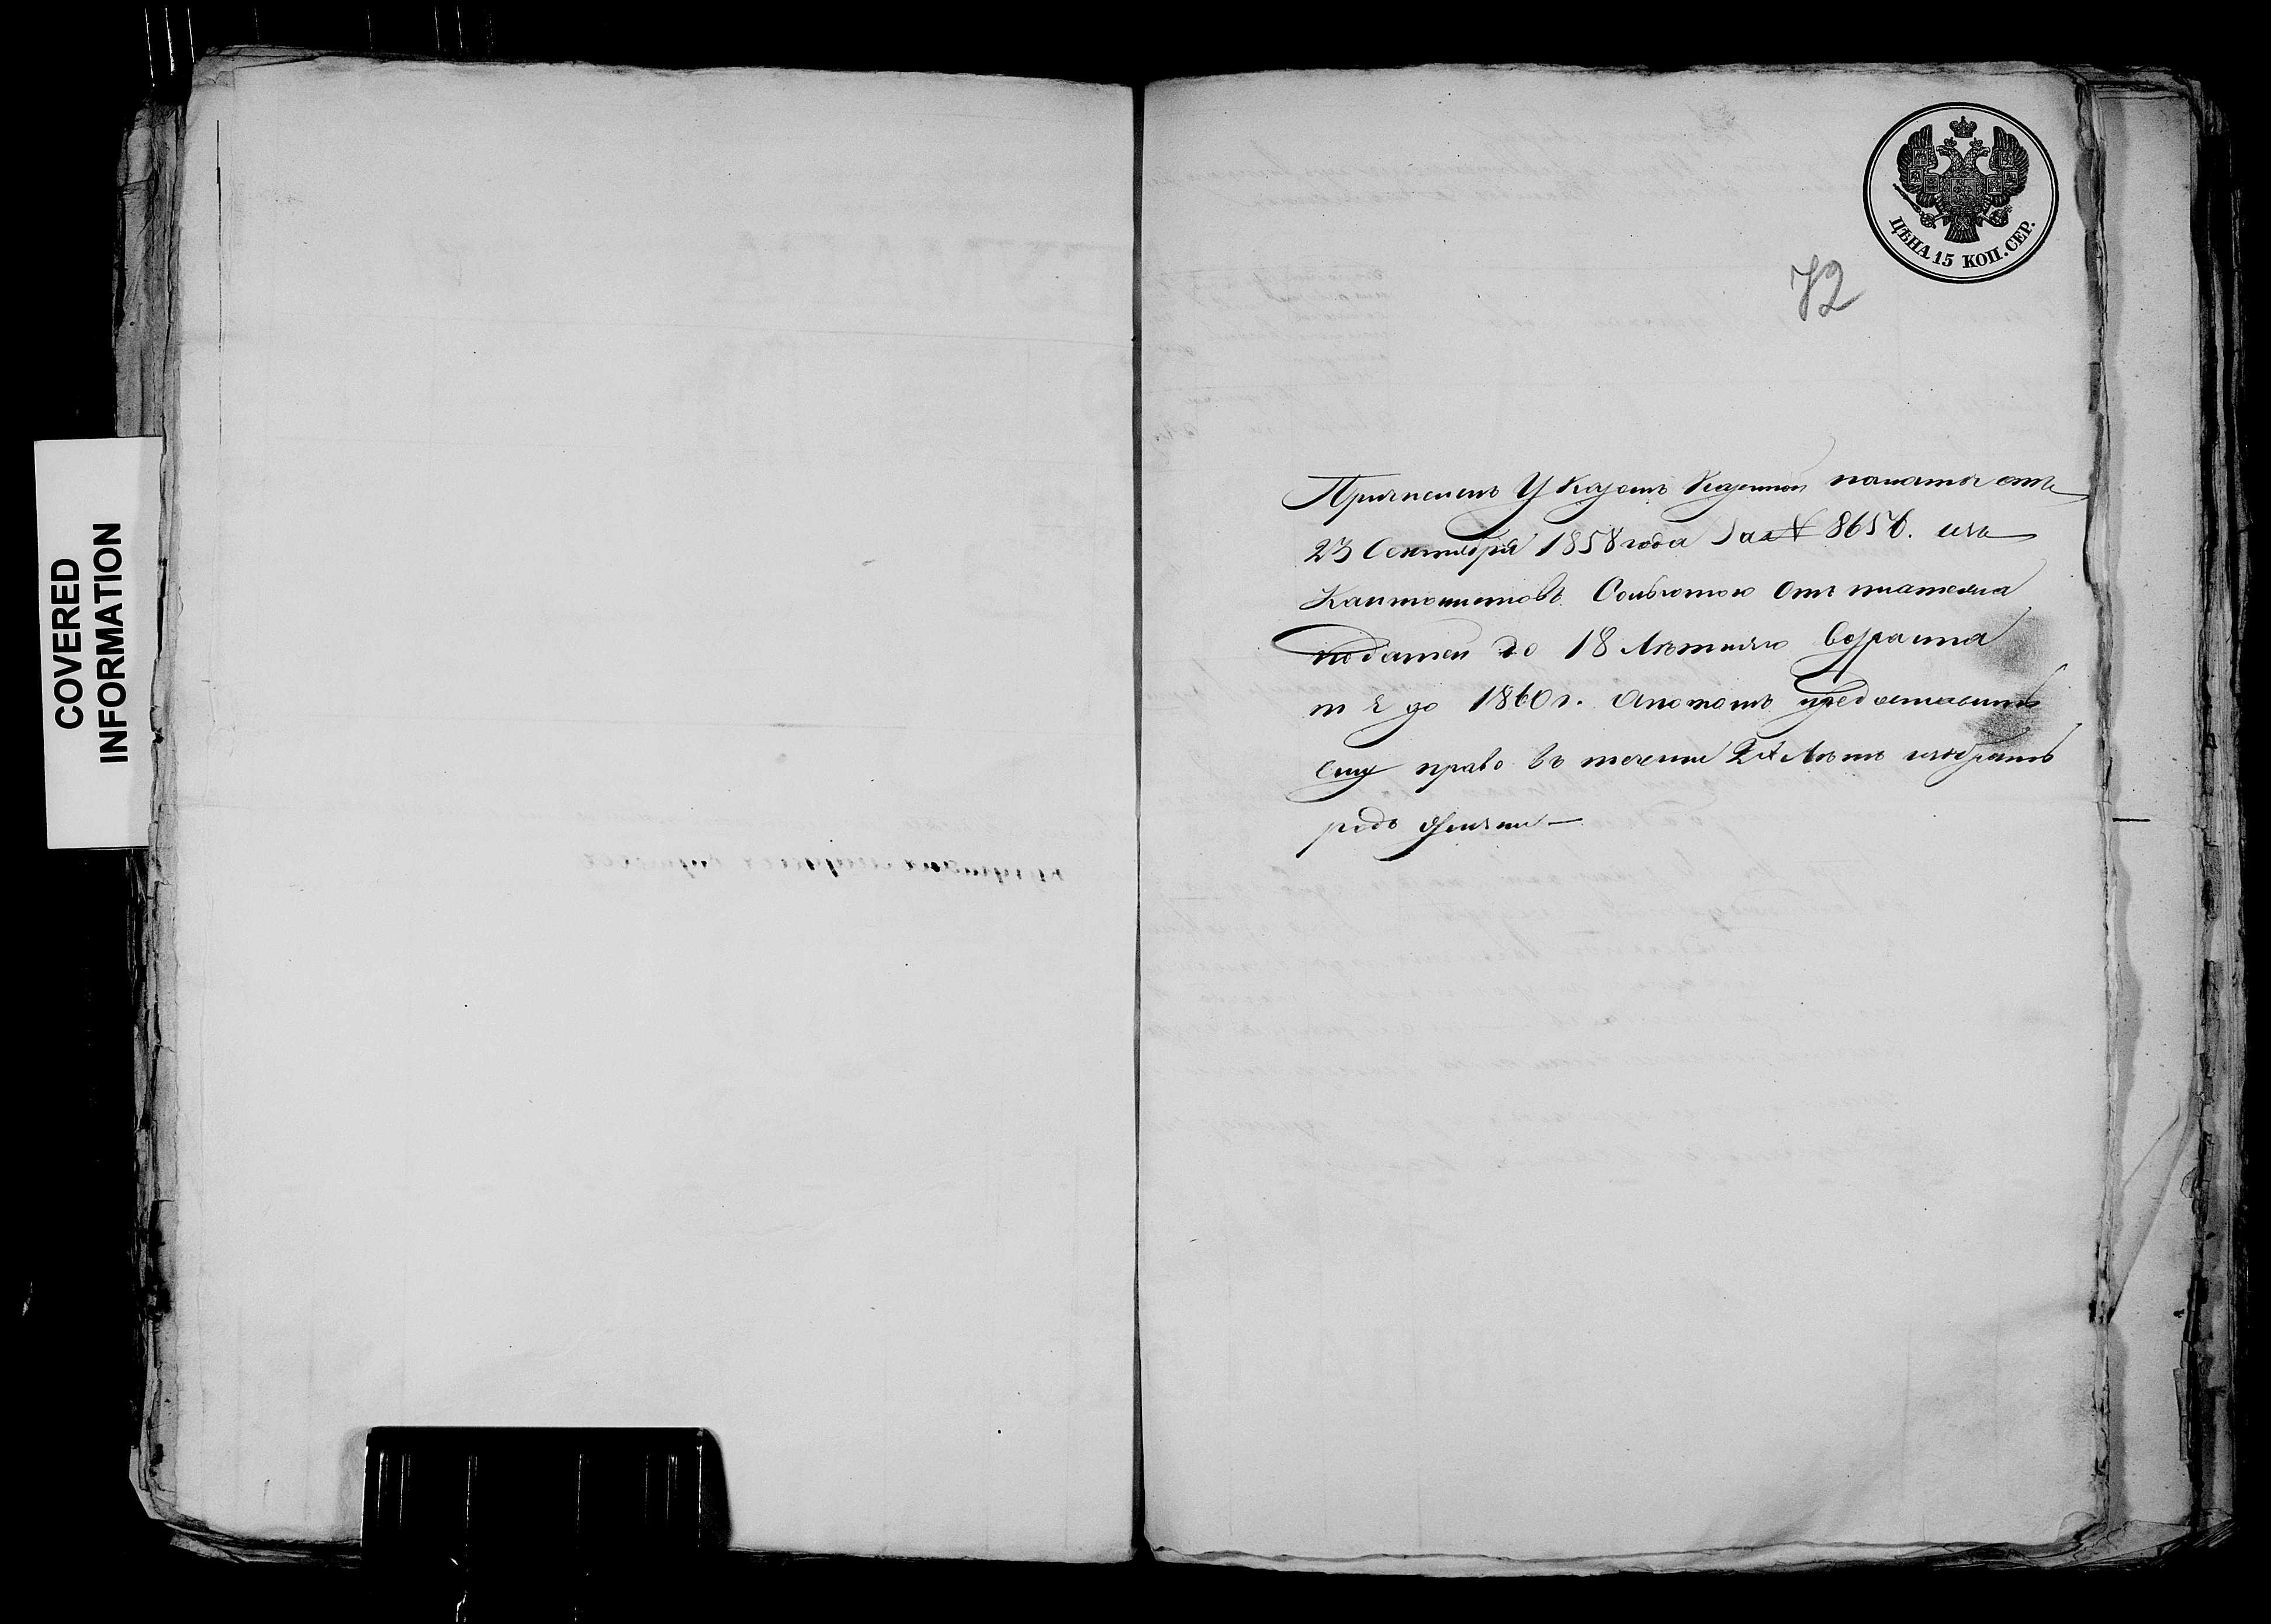 COVERED
INFORMATION
ЦѢНА 15 КОП. СЕР.
72
Причисленъ Указомъ Казенной палаты отъ
23 Сентября 1858 года За № 8656. изъ
Кантонистовъ Сольготою Отъ платежа
податей до 18 Лѣтняго возраста
т е до 1860 г. Апотомъ предоставить
ему право въ течении 2х Лѣтъ избрать
родъ жизни —